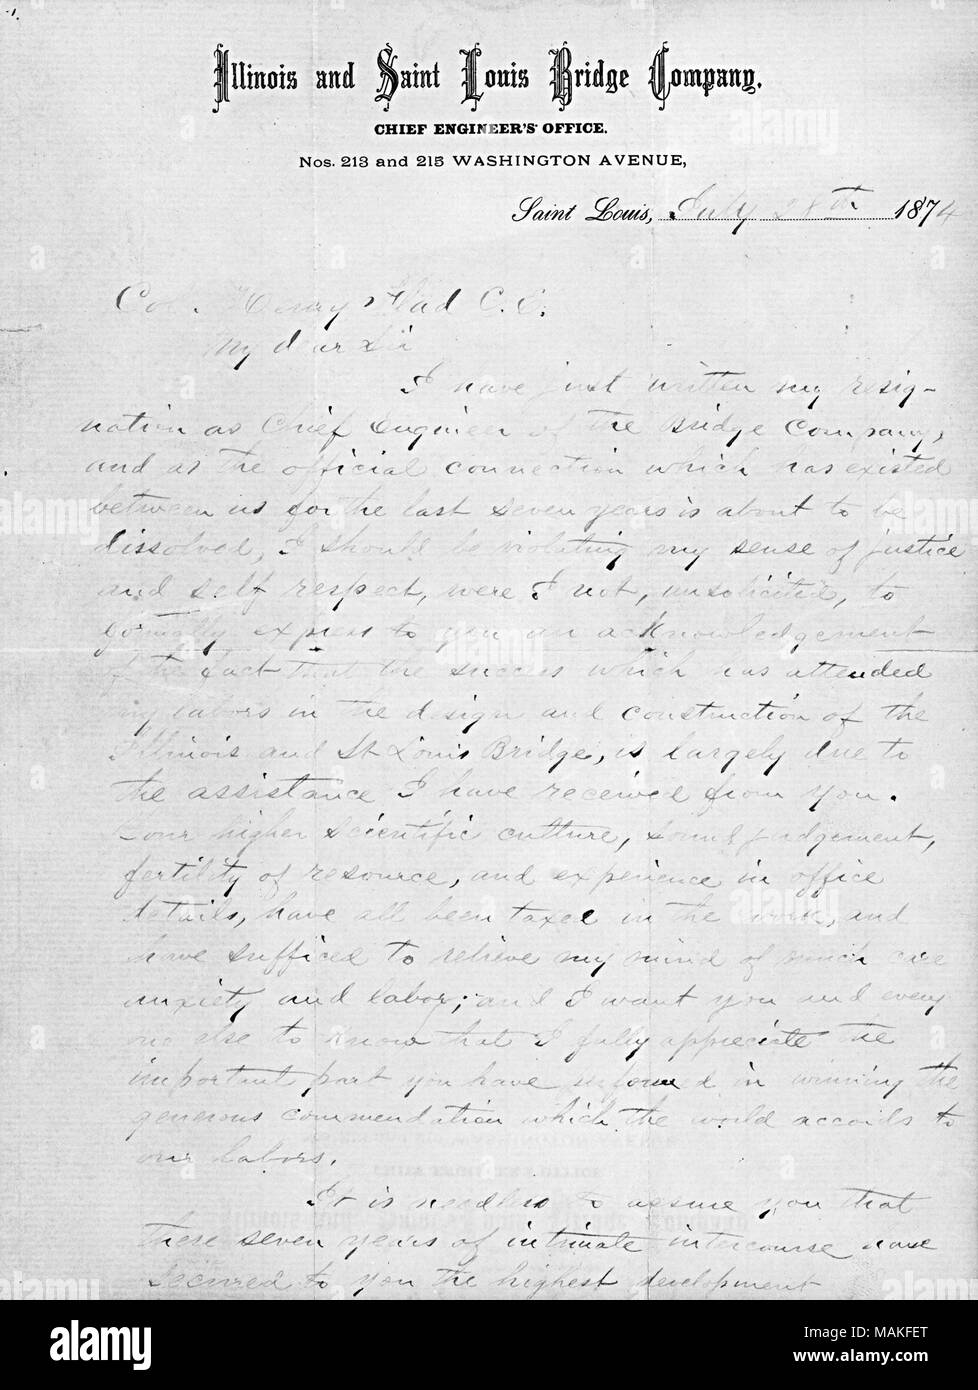 Illinois and Saint Louis Bridge Company.
CHIEF ENGINEER'S OFFICE.
Nos. 213 and 215 WASHINGTON AVENUE,
Saint Louis, July 28th 1874
Col. Henry Flad C. E.
My dear Sir
I have just written my resig-
nation as Chief Engineer of the Bridge Company,
and as the official connection which has existed
between us for the last seven years is about to be
dissolved, I should be violating my sense of justice
and self respect, were I not, unsolicited, to
formally express to you an acknowledgement
of the fact that the success which has attended
my labors in the design and construction of the
Illinois and St Louis Bridge, is largely due to
the assistance I have received from you.
Your higher scientific culture, sound judgement,
fertility of resource, and experience in office
details, have all been taxed in the work, and
have sufficed to relieve my mind of much care
anxiety and labor; and I want you and every
one else to know that I fully appreciate the
important part you have performed in winning the
generous commendation which the world accords to
our labors.
It is needless to assure you that
these seven years of intimate intercourse have
secured to you the highest development
alamy
Image ID: MAKFET
www.alamy.com